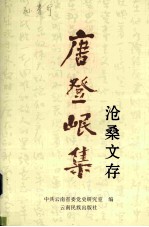 唐登岷集
沧桑文存
中共云南省委党史研究室 编
云南民族出版社